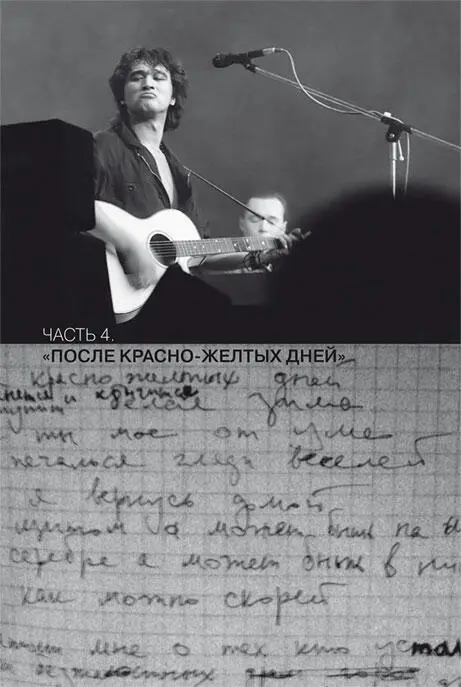 ЧАСТЬ 4.
«ПОСЛЕ КРАСНО-ЖЕЛТЫХ ДНЕЙ»
красно желтых дней
и кончится
белая зима
ты мое от ума
печалься гляди веселей
я вернусь домой
щитом а может быть на
серебре а может быть в
как можно скорей
мне о тех кто устал